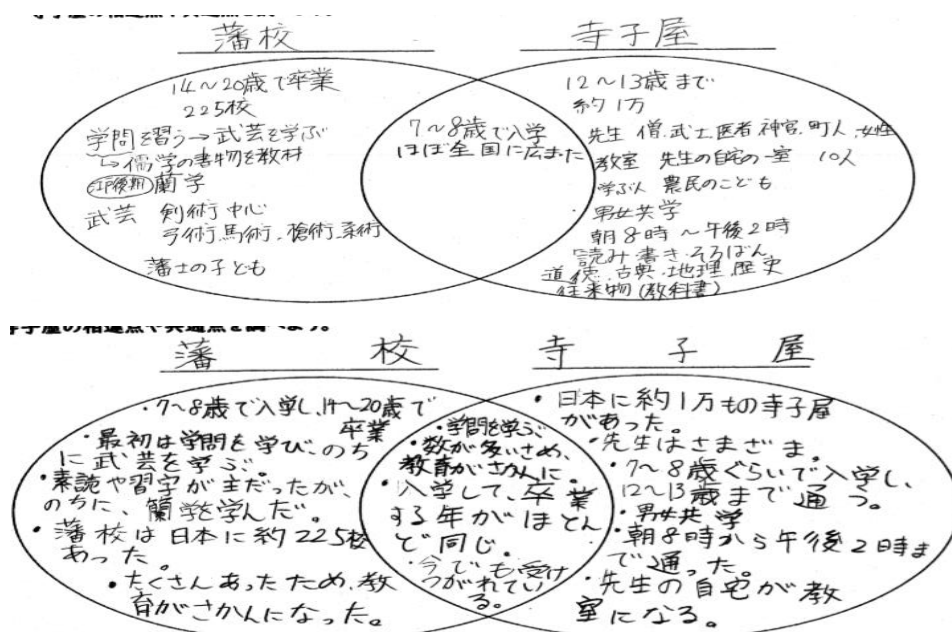 寺子屋の相違点や共通点を調べよう。
藩校
寺子屋
14～20歳で卒業
225校
学問を習う→武芸を学ぶ
↳儒学の書物を教材
江戸後期 蘭学
武芸 剣術中心
弓術.馬術.槍術.柔術
藩士の子ども
7～8歳で入学
ほぼ全国に広まった
12～13歳まで
約1万
先生 僧.武士.医者.神官.町人.女性
教室 先生の自宅の一室 10人
学ぶ人 農民のこども
男女共学
朝8時～午後2時
読み書き.そろばん
道徳.古典.地理.歴史
往来物(教科書)
寺子屋の相違点や共通点を調べよう。
藩校
寺子屋
・7～8歳で入学し、14～20歳で
卒業
・最初は学問を学び、のち
に武芸を学ぶ。
・素読や習字が主だったが、
のちに、蘭学を学んだ。
・藩校は日本に約225校
あった。
・たくさんあったため、教
育がさかんになった。
・学問を学ぶ
・数が多いため、
教育がさかんに。
・入学して、卒業
する年がほとん
ど同じ。
・今でも受け
つがれてい
る。
・日本に約1万もの寺子屋
があった。
・先生はさまざま。
・7～8歳ぐらいで入学し、
12～13歳まで通う。
・男女共学
・朝8時から午後2時ま
で通った。
・先生の自宅が教
室になる。